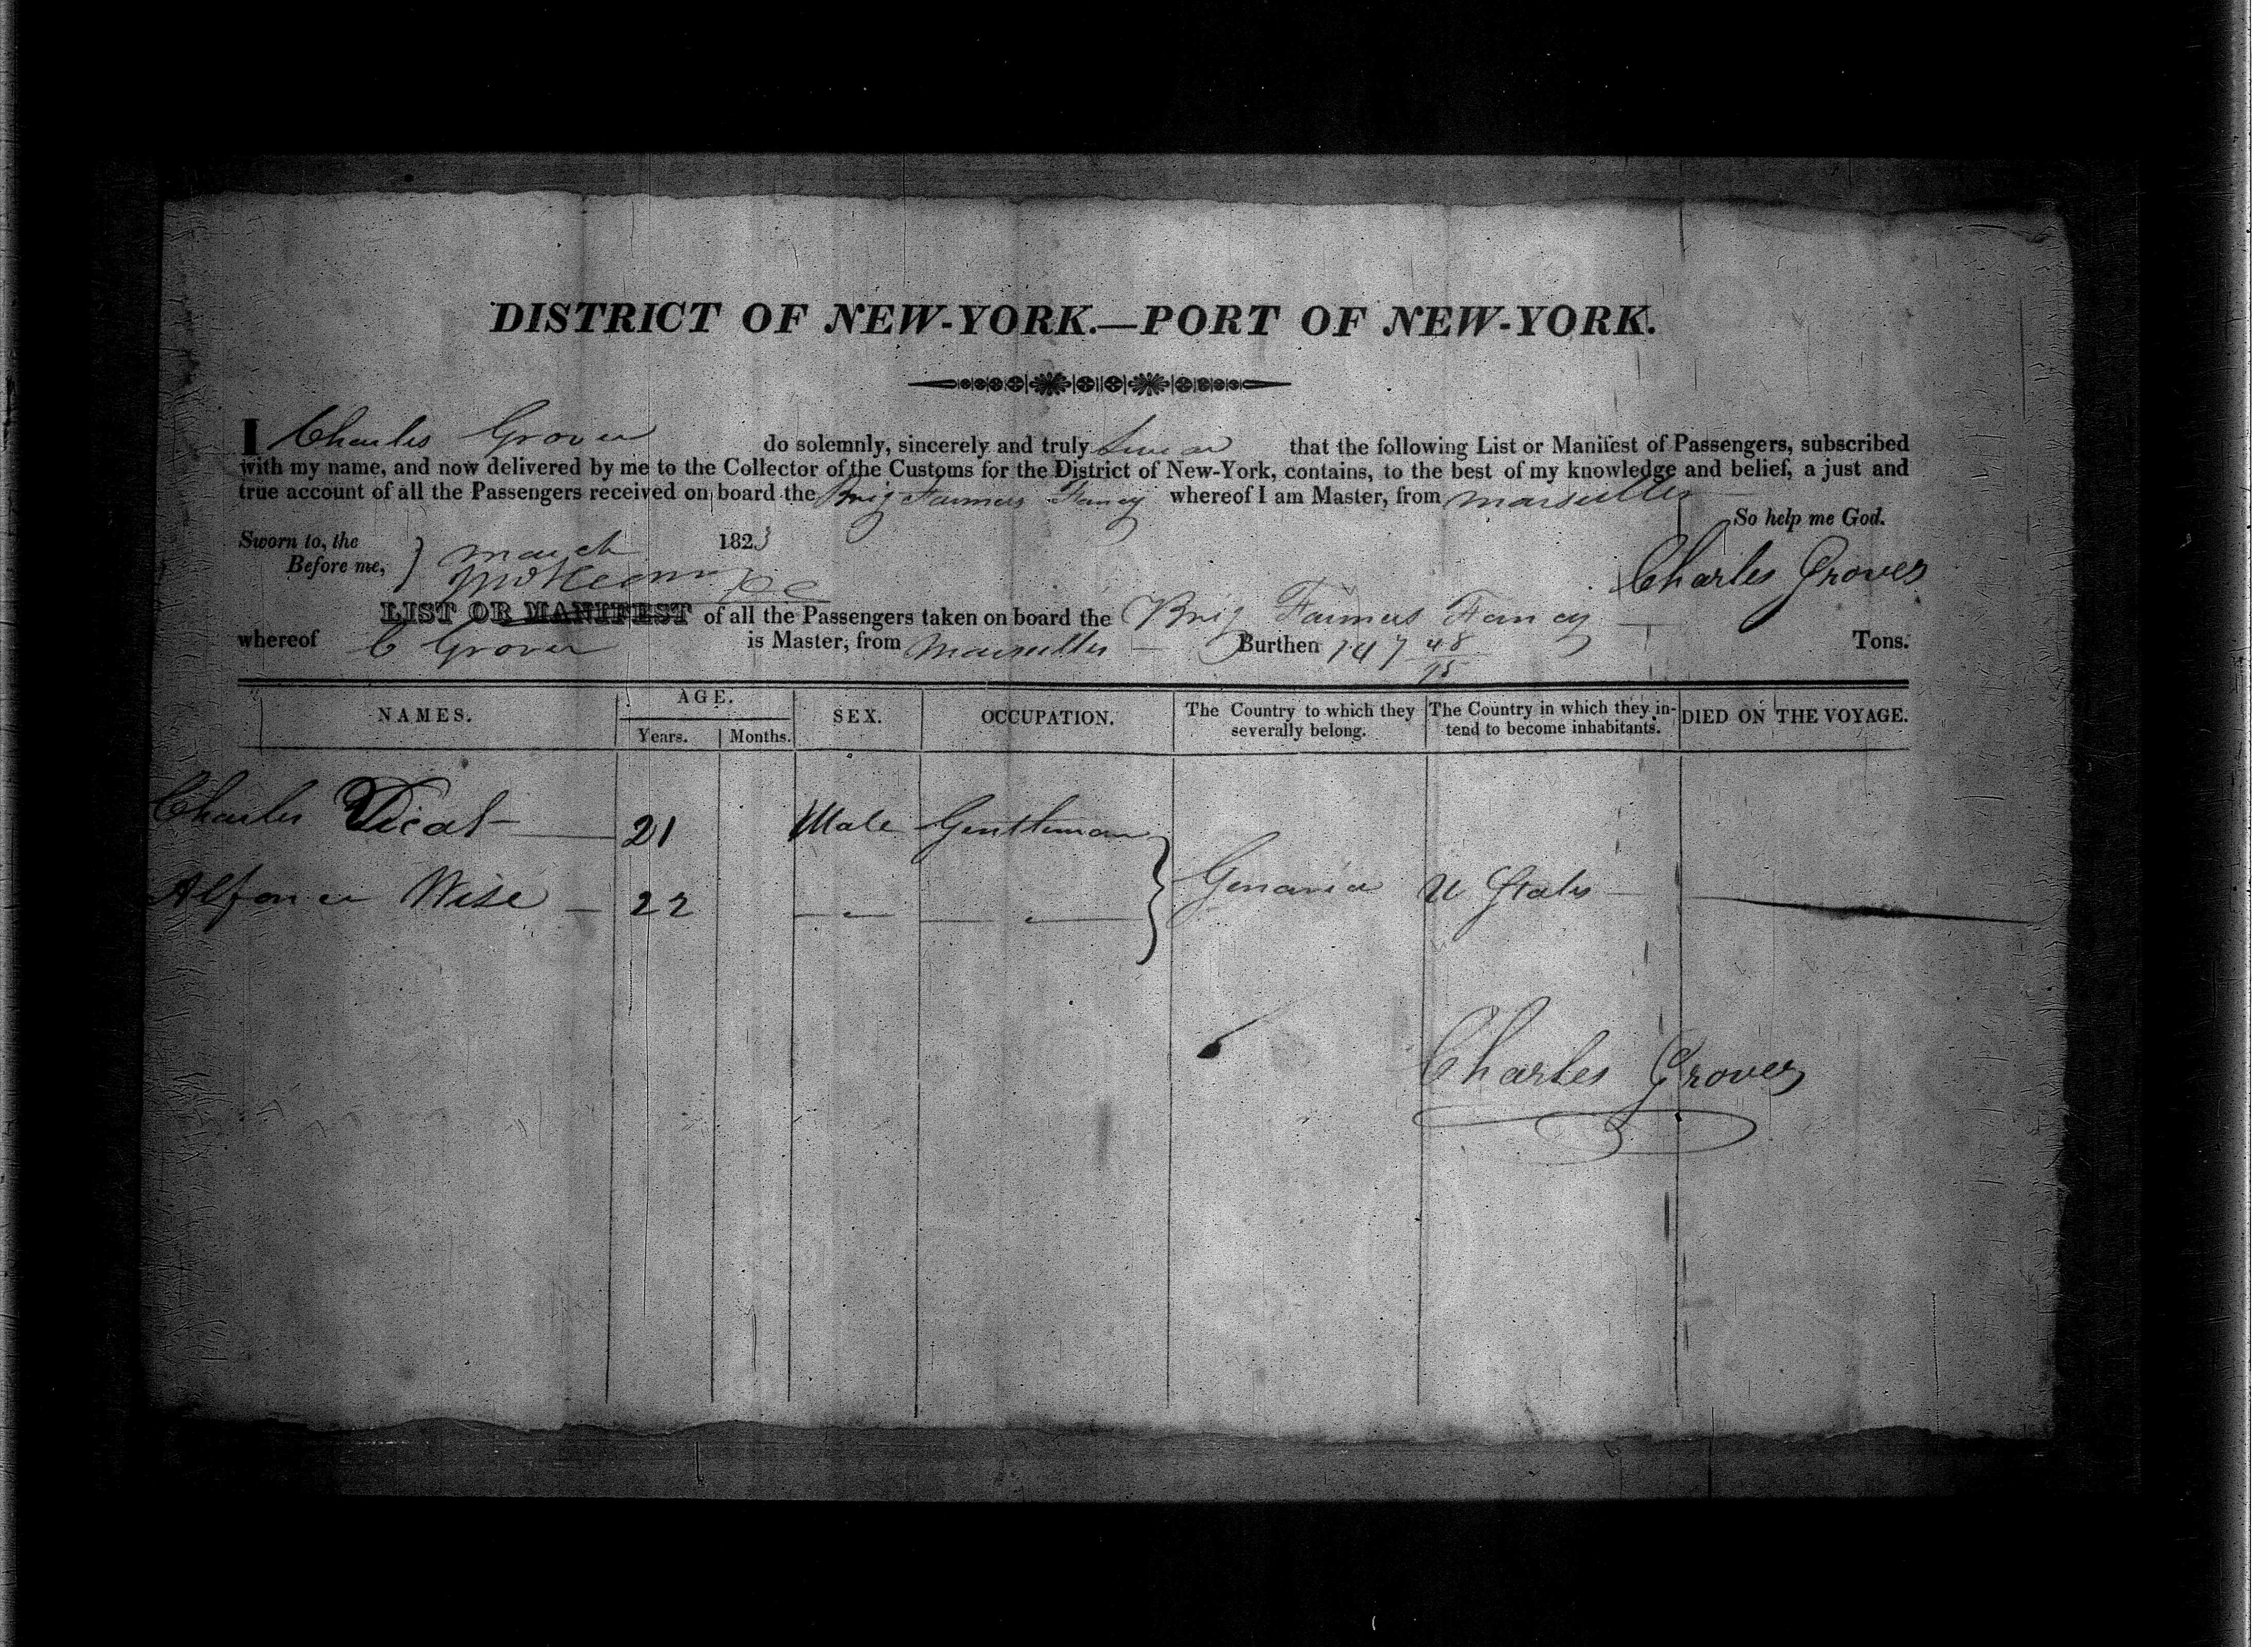 DISTRICT OF NEW-YORK.—PORT OF NEW-YORK.
I Charles Grover do solemnly, sincerely and truly swear that the following List or Manifest of Passengers, subscribed
with my name, and now delivered by me to the Collector of the Customs for the District of New-York, contains, to the best of my knowledge and belief, a just and
true account of all the Passengers received on board the Brig Farmers Fancy whereof I am Master, from Marseilles
So help me God.
Sworn to, the March 1823
Before me,
Charles Grover
LIST OR MANIFEST of all the Passengers taken on board the Brig Farmers Fancy
whereof C Grover is Master, from Marseilles Burthen 147 48/95 Tons.
NAMES. AGE. Years. Months. SEX. OCCUPATION. The Country to which they severally belong. The Country in which they intend to become inhabitants. DIED ON THE VOYAGE.
Charles Dicat 21 Male Gentleman
Wise 22 U States
Charles Grover